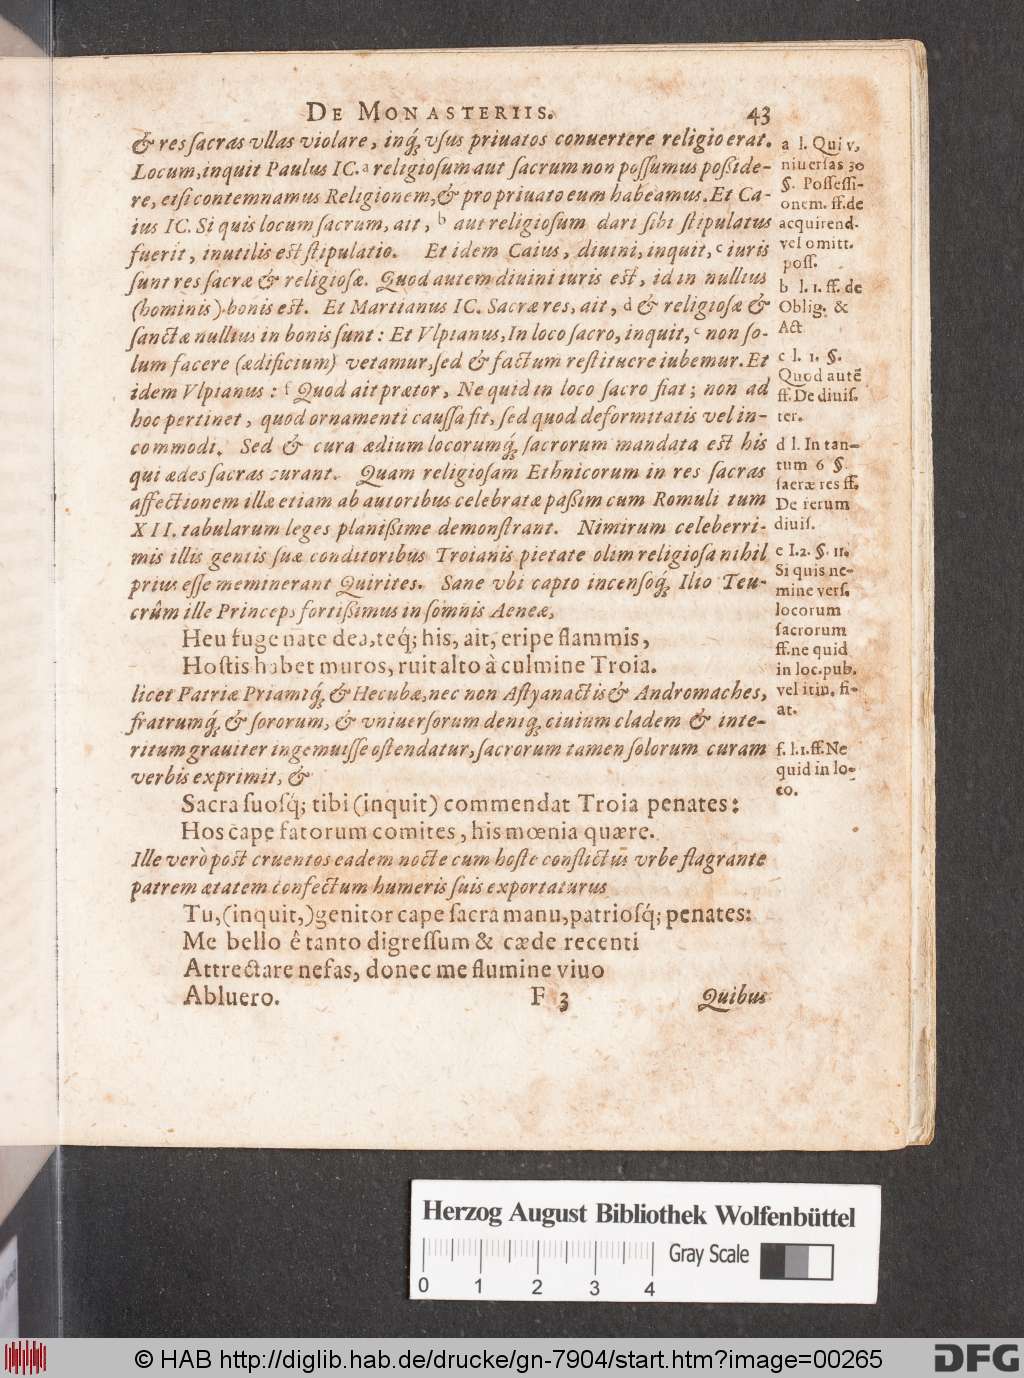 DE MONASTERIIS. 43
& res sacras vllas violare, inq́; vsus priuatos conuertere religio erat.
Locum, inquit Paulus IC. a religiosum aut sacrum non possumus poßide-
re, etsi contemnamus Religionem, & pro priuato eum habeamus. Et Ca-
ius IC. Si quis locum sacrum, ait, b aut religiosum dari sibi stipulatus
fuerit, inutilis est stipulatio. Et idem Caius, diuini, inquit, c iuris
sunt res sacræ & religiosæ. Quod autem diuini iuris est, id in nullius
(hominis) bonis est. Et Martianus IC. Sacræ res, ait, d & religiosæ &
sanctæ nullius in bonis sunt: Et Vlpianus, In loco sacro, inquit, e non so-
lum facere (ædificium) vetamur, sed & factum restituere iubemur. Et
idem Vlpianus: f Quod ait prætor, Ne quid in loco sacro fiat; non ad
hoc pertinet, quod ornamenti caussa fit, sed quod deformitatis vel in-
commodi. Sed & cura ædium locorumq́; sacrorum mandata est his
qui ædes sacras curant. Quam religiosam Ethnicorum in res sacras
affectionem illæ etiam ab autoribus celebratæ paßim cum Romuli tum
XII. tabularum leges planißime demonstrant. Nimirum celeberri-
mis illis gentis suæ conditoribus Troianis pietate olim religiosa nihil
prius esse meminerant Quirites. Sane vbi capto incensoq́; Ilio Teu-
crûm ille Princeps fortißimus in somnis Aeneæ,
Heu fuge nate dea, teq́; his, ait, eripe flammis,
Hostis habet muros, ruit alto à culmine Troia.
licet Patriæ Priamiq́; & Hecubæ, nec non Astyanactis & Andromaches,
fratrumq́; & sororum, & vniuersorum deniq́; ciuium cladem & inte-
ritum grauiter ingemuisse ostendatur, sacrorum tamen solorum curam
verbis exprimit, &
Sacra suosq́; tibi (inquit) commendat Troia penates:
Hos cape fatorum comites, his mœnia quære.
Ille verò post cruentos eadem nocte cum hoste conflictus vrbe flagrante
patrem ætatem confectum humeris suis exportaturus
Tu, (inquit,) genitor cape sacra manu, patriosq́; penates:
Me bello ê tanto digressum & cæde recenti
Attrectare nefas, donec me flumine viuo
Abluero. F 3 Quibus
a l. Qui v,
niuersas 30
§. Possessi-
onem. ff. de
acquirend.
vel omitt.
poss.
b l. 1. ff. de
Oblig. &
Act
c l. 1. §.
Quod autē
ff. De diuis.
rer.
d l. In tan-
tum 6 §.
sacræ res ff.
De rerum
diuis.
e l. 2. §. 11.
Si quis ne-
mine vers.
locorum
sacrorum
ff. ne quid
in loc. pub.
vel itin. fi-
at.
f. l. 1. ff. Ne
quid in lo-
co.
Herzog August Bibliothek Wolfenbüttel
0 1 2 3 4 Gray Scale
© HAB http://diglib.hab.de/drucke/gn-7904/start.htm?image=00265 DFG